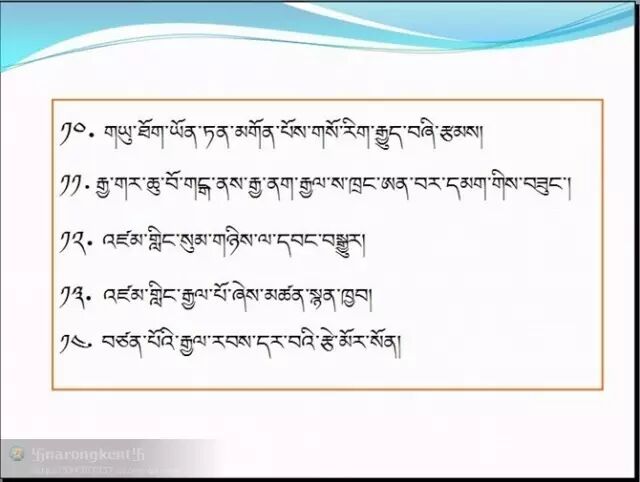 ༡༠. གཡུ་ཐོག་ཡོན་ཏན་མགོན་པོས་གསོ་རིག་རྒྱུད་བཞི་རྩམས།
༡༡. རྒྱ་གར་ཆུ་བོ་གངྒ་ནས་རྒྱ་ནག་རྒྱལ་ས་ཁྲང་ཨན་བར་དམག་གིས་བཟུང་།
༡༢. འཛམ་གླིང་སུམ་གཉིས་ལ་དབང་བསྒྱུར།
༡༣. འཛམ་གླིང་རྒྱལ་པོ་ཞེས་མཚན་སྙན་ཁྱབ།
༡༤. བཙན་པོའི་རྒྱལ་རབས་དར་བའི་རྩེ་མོར་སོན།
卐narongkent卐